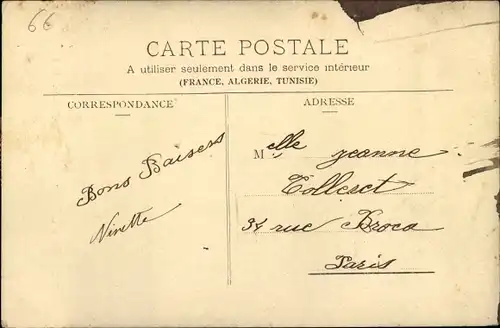 66
CARTE POSTALE
A utiliser seulement dans le service intérieur
(FRANCE, ALGERIE, TUNISIE)
CORRESPONDANCE
ADRESSE
Bons Baisers
Ninette
Melle Jeanne
Tolleset
34 rue Broca
Paris